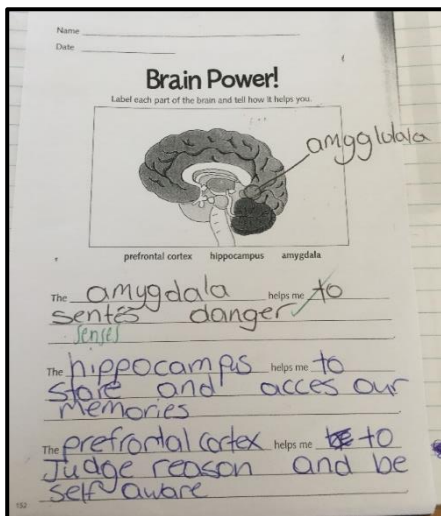 Name
Date
Brain Power!
Label each part of the brain and tell how it helps you.
amygglulala
prefrontal cortex hippocampus amygdala
The amygdala helps me to
sentes danger
senses
The hippocampus helps me to
store and acces our
memories
The prefrontal cortex helps me to
Judge reason and be
self aware
152